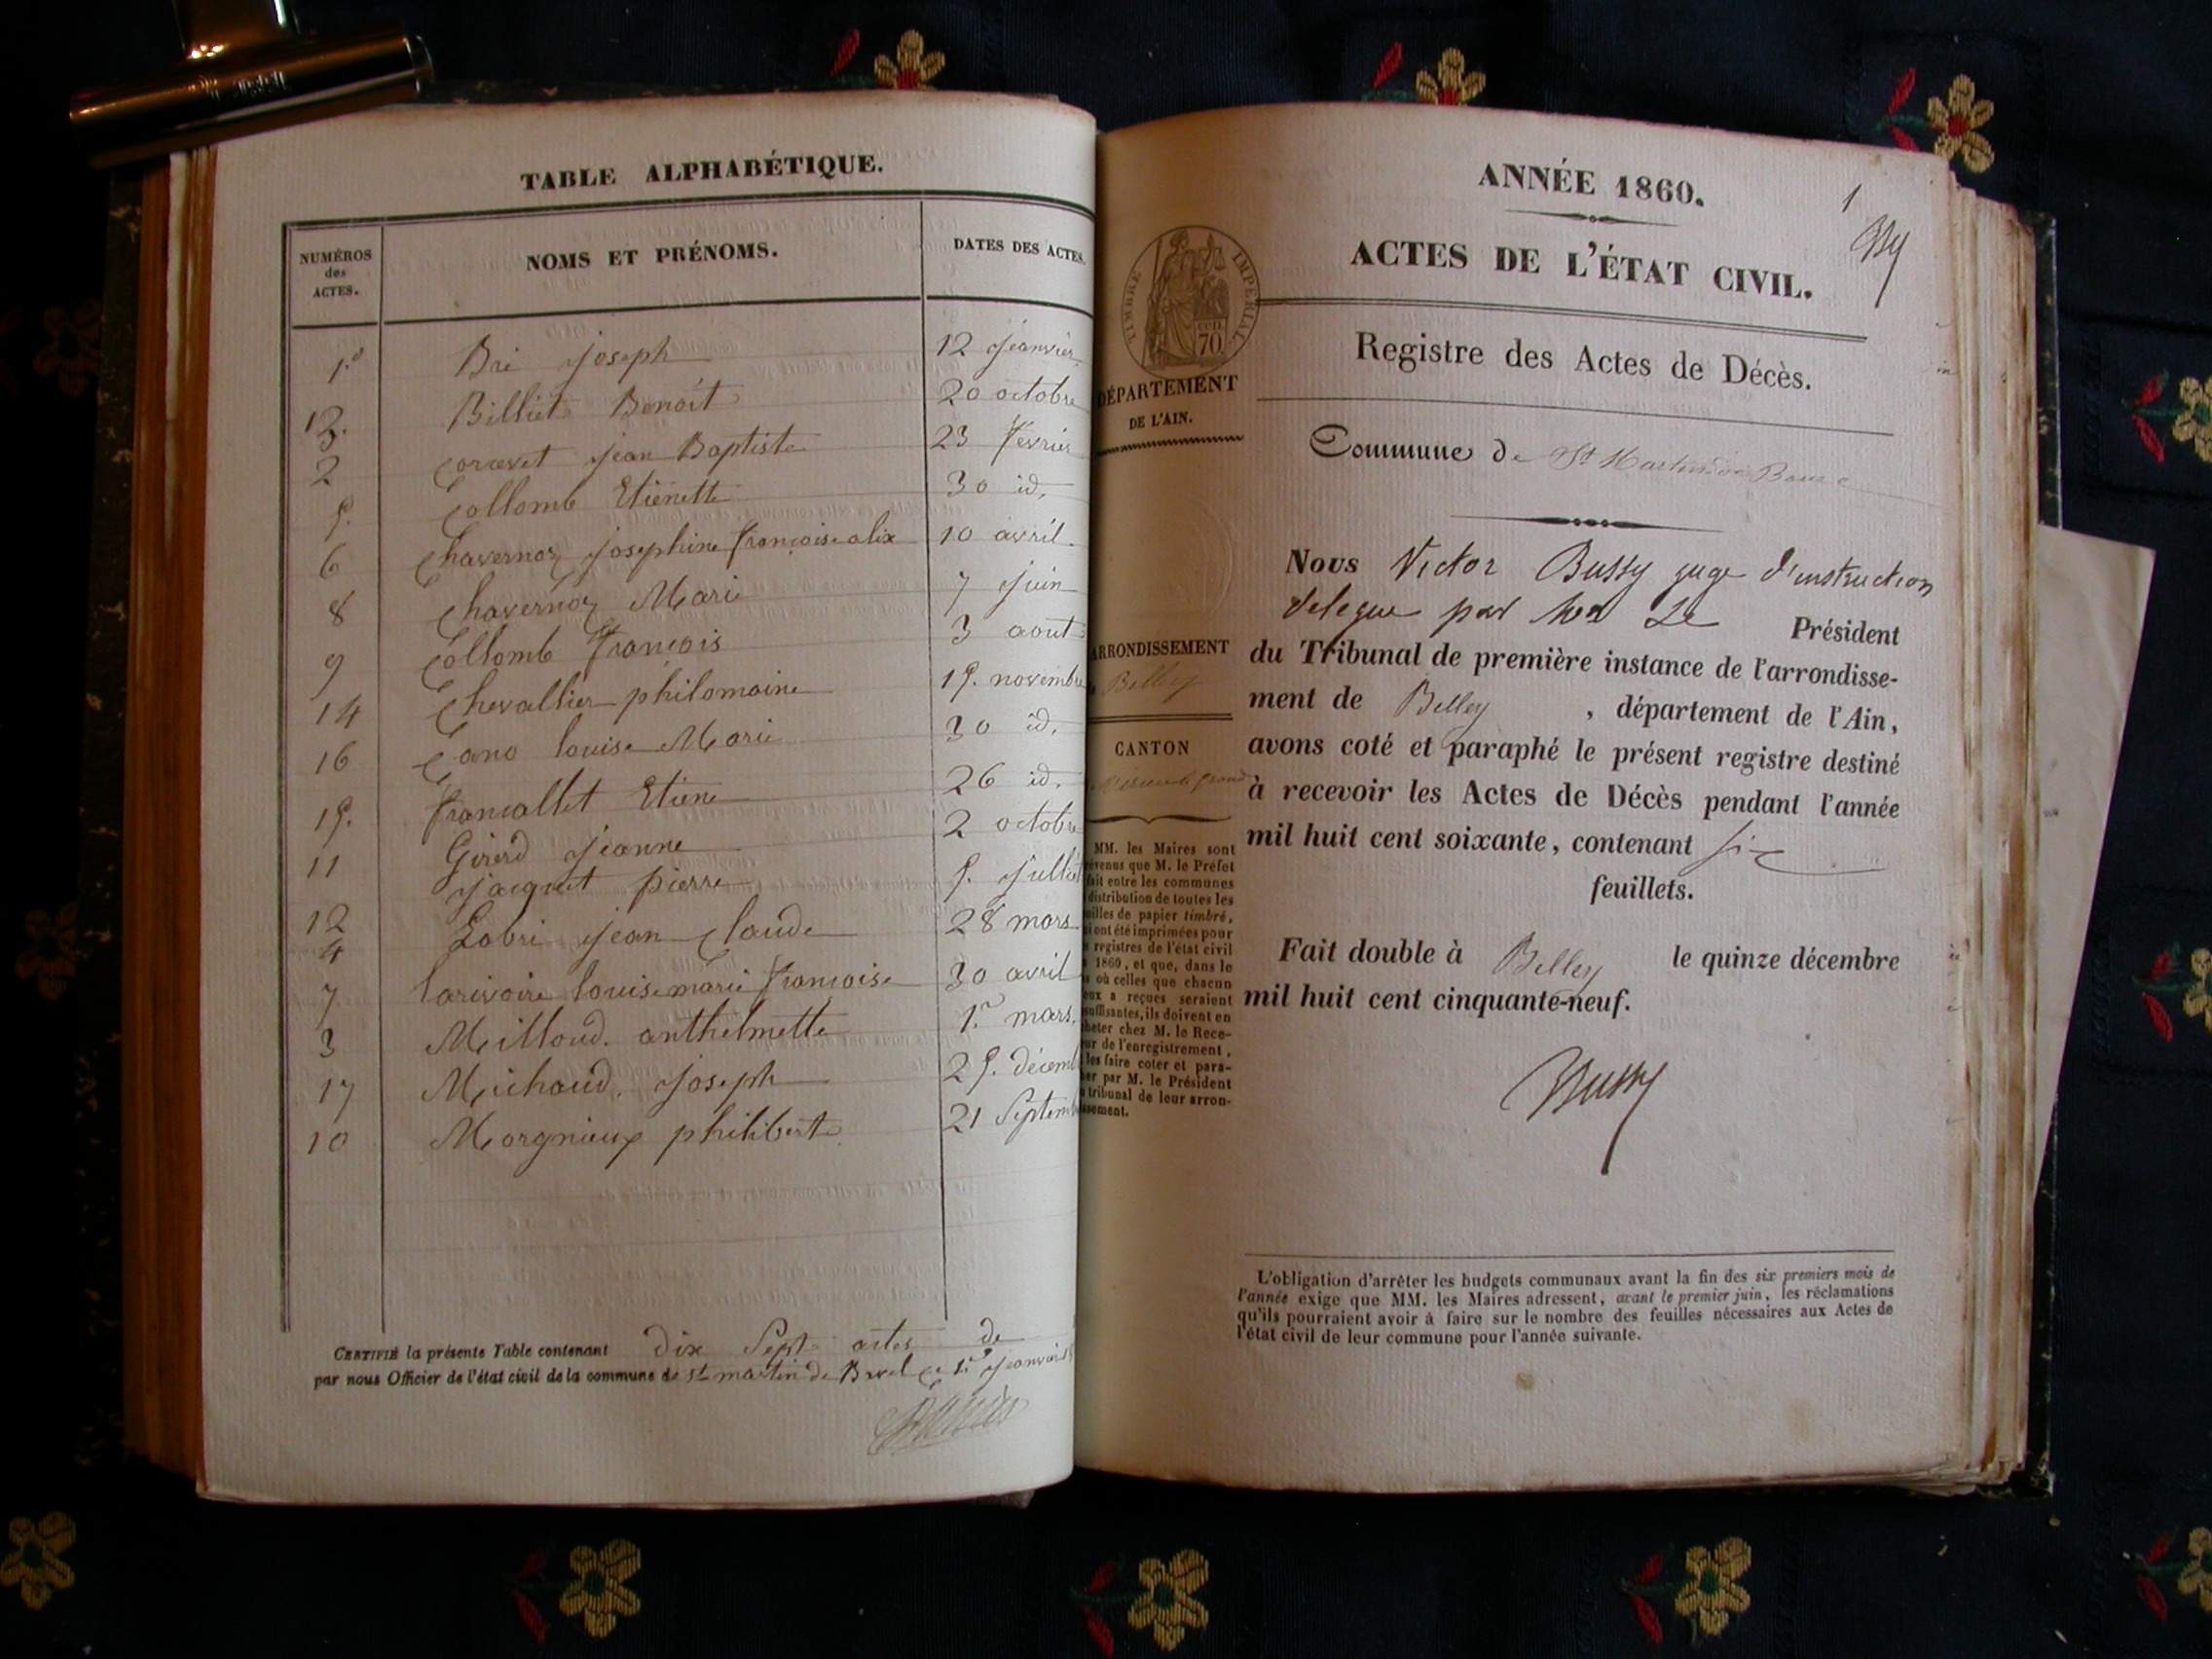 TABLE ALPHABÉTIQUE.
NUMÉROS des ACTES.
NOMS ET PRÉNOMS.
DATES DES ACTES.
1. Bri joseph 12 jeanvier
12. Billiet Benoit 20 octobre
2 jean Baptiste 23 fevrier
5. Collomb Etienette 30 id.
6 Chavernoz josephine francoise alix 10 avril
8 Chavernoz Marie 7 juin
9 Collomb francois 3 aout
14 Chevallier philomaine 15. novembre
16 Cano louise Marie 30 id.
15. francallet Etiene 26 id.
11 Girerd jeanne 2 octobre
jacquet pierre 5. jullet
12
4 Labri jean Claude 28 mars
7 larivoire louise marie francoise 30 avril
3 Milloud. anthelmette 1.r mars.
17 Michaud. joseph 25. décemb
10 Morgnieux philibert 21 Septemb
CERTIFIÉ la présente Table contenant dix Sept actes de
par nous Officier de l'état civil de la commune de st martin de Bavel ce 1.r jeanvier
1
ANNÉE 1860.
ACTES DE L'ÉTAT CIVIL.
TIMBRE IMPERIAL
cen. 70
Registre des Actes de Décès.
DÉPARTEMENT
DE L'AIN.
Commune de St Martin de
Nous Victor Bussy juge d'instruction
delegue par Mr Le Président
du Tribunal de première instance de l'arrondisse-
ment de Belley , département de l'Ain,
avons coté et paraphé le présent registre destiné
à recevoir les Actes de Décès pendant l'année
mil huit cent soixante, contenant six
feuillets.
Fait double à Belley le quinze décembre
mil huit cent cinquante-neuf.
Bussy
ARRONDISSEMENT
Belley
CANTON
MM. les Maires sont
que M. le Préfet
fait entre les communes
distribution de toutes les
de papier timbré,
ont été imprimées pour
registres de l'état civil
1860, et que, dans le
où celles que chacun
a reçues seraient
ils doivent en
chez M. le Rece-
de l'enregistrement,
les faire coter et para-
par M. le Président
tribunal de leur arron-
L'obligation d'arrêter les budgets communaux avant la fin des six premiers mois de
l'année exige que MM. les Maires adressent, avant le premier juin, les réclamations
qu'ils pourraient avoir à faire sur le nombre des feuilles nécessaires aux Actes de
l'état civil de leur commune pour l'année suivante.